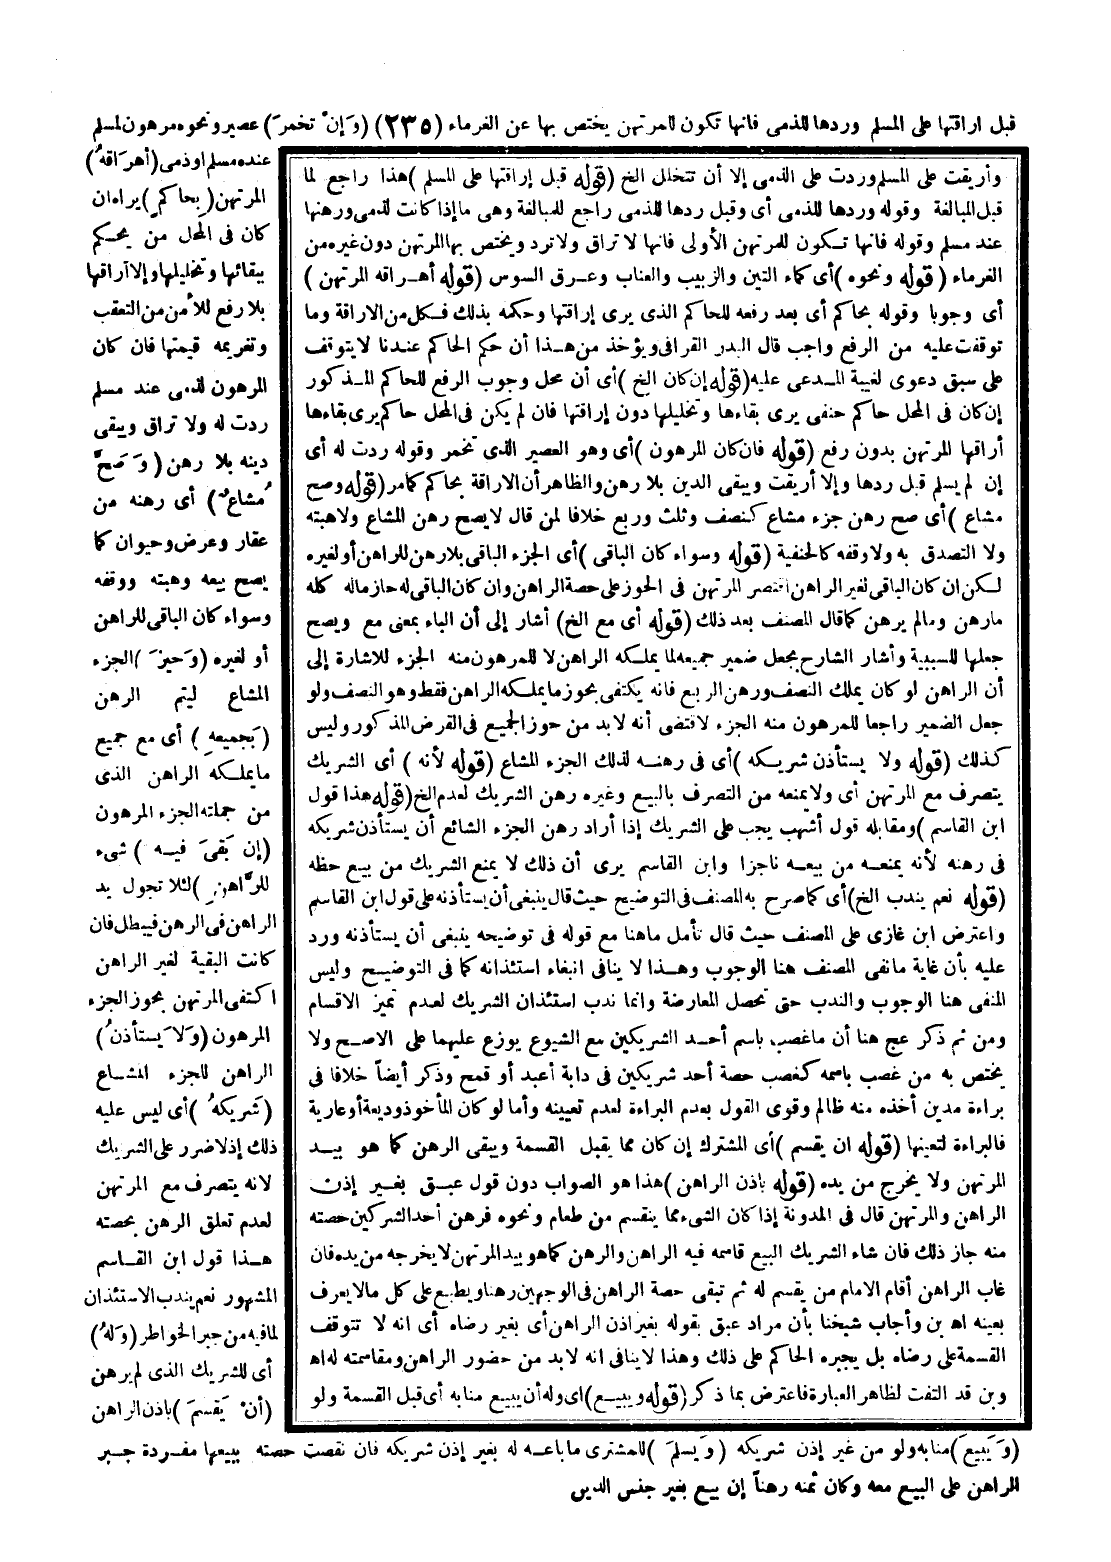 قبل اراقتها على المسلم وردها للذمى فانها تكون للمرتهن يختص بها عن الغرماء (٢٣٥) (وَإنْ تخمرَ) عصير ونحوه مرهون لمسلم
عنده مسلم اوذمى (أهرَاقهُ)
المرتهن (بِحاكمٍ) يراه ان
كان فى المحل من يحكم
ببقائها وتخليلها والا آراقها
بلا رفع للأمن من التعقب
وتغريمه قيمتها فان كان
المرهون لذمى عند مسلم
ردت له ولا تراق ويبقى
دينه بلا رهن (وَصَحَّ
مُشاعٌ) أى رهنه من
عقار وعرض وحيوان كما
يصح بيعه وهبته ووقفه
وسواء كان الباقى للراهن
أو لغيره (وَحيزَ) الجزء
المشاع ليتم الرهن
(بَجميعهِ) أى مع جميع
ما يملكه الراهن الذى
من جملته الجزء المرهون
(إن بَقىَ فيه) شىء
للرَّاهنِ) لئلا تجول يد
الراهن فى الرهن فيبطل فان
كانت البقية لغير الراهن
اكتفى المرتهن بحوز الجزء
المرهون (وَلاَ يَستأذنُ)
الراهن للجزء المشاع
(شَريكهُ) أى ليس عليه
ذلك إذ لا ضرر على الشريك
لانه يتصرف مع المرتهن
لعدم تعلق الرهن بحصته
هذا قول ابن القاسم
المشهور نعم يندب الاستئذان
لمافيه من جبر الخواطر (وَلهُ)
أى للشريك الذى لم يرهن
(أنْ يَقسمَ) باذن الراهن
وأريقت على المسلم وردت على الذمى إلا أن تتخلل الخ (قوله قبل إراقتها على المسلم) هذا راجع لما
قبل المبالغة وقوله وردها للذمى أى وقبل ردها للذمى راجع للمبالغة وهى ما إذا كانت لذمى ورهنها
عند مسلم وقوله فانها تكون للمرتهن الأولى فانها لا تراق ولا ترد ويختص بها المرتهن دون غيره من
الغرماء (قوله ونحوه) أى كماء التين والزبيب والعناب وعرق السوس (قوله أهراقه المرتهن)
أى وجوبا وقوله بحاكم أى بعد رفعه للحاكم الذى يرى إراقتها وحكمه بذلك فكل من الاراقة وما
توقفت عليه من الرفع واجب قال البدر القرافى ويؤخذ من هذا أن حكم الحاكم عندنا لا يتوقف
على سبق دعوى لغيبة المدعى عليه (قوله إن كان الخ) أى أن محل وجوب الرفع للحاكم المذكور
إن كان فى المحل حاكم حنفى يرى بقاءها وتخليلها دون إراقتها فان لم يكن فى المحل حاكم يرى بقاءها
أراقها المرتهن بدون رفع (قوله فان كان المرهون) أى وهو العصير الذى تخمر وقوله ردت له أى
إن لم يسلم قبل ردها وإلا أريقت ويبقى الدين بلا رهن والظاهر أن الاراقة بحاكم كما مر (قوله وصح
مشاع) أى صح رهن جزء مشاع كنصف وثلث وربع خلافا لمن قال لا يصح رهن المشاع ولا هبته
ولا التصدق به ولا وقفه كالحنفية (قوله وسواء كان الباقى) أى الجزء الباقى بلا رهن للراهن أو لغيره
لكن ان كان الباقى لغير الراهن اقتصر المرتهن فى الحوز على حصة الراهن وان كان الباقى له حاز ماله كله
ما رهن وما لم يرهن كما قال المصنف بعد ذلك (قوله أى مع الخ) أشار إلى أن الباء بمعنى مع ويصح
جعلها للسببية وأشار الشارح بجعل ضمير جميعه لما يملكه الراهن لا للمرهون منه الجزء للاشارة إلى
أن الراهن لو كان يملك النصف ورهن الربع فانه يكتفى بحوز ما يملكه الراهن فقط وهو النصف ولو
جعل الضمير راجعا للمرهون منه الجزء لاقتضى أنه لابد من حوز الجميع فى الفرض المذكور وليس
كذلك (قوله ولا يستأذن شريكه) أى فى رهنه لذلك الجزء المشاع (قوله لأنه) أى الشريك
يتصرف مع المرتهن أى ولا يمنعه من التصرف بالبيع وغيره رهن الشريك لعدم الخ (قوله هذا قول
ابن القاسم) ومقابله قول أشهب يجب على الشريك إذا أراد رهن الجزء الشائع أن يستأذن شريكه
فى رهنه لأنه يمنعه من بيعه ناجزا وابن القاسم يرى أن ذلك لا يمنع الشريك من بيع حظه
(قوله نعم يندب الخ) أى كما صرح به المصنف فى التوضيح حيث قال ينبغى أن يستأذنه على قول ابن القاسم
واعترض ابن غازى على المصنف حيث قال تأمل ما هنا مع قوله فى توضيحه ينبغى أن يستأذنه ورد
عليه بأن غاية ما نفى المصنف هنا الوجوب وهذا لا ينافى انبغاء استئذانه كما فى التوضيح وليس
المنفى هنا الوجوب والندب حتى تحصل المعارضة وانما ندب استئذان الشريك لعدم تميز الاقسام
ومن ثم ذكر عج هنا أن ما غصب باسم أحد الشريكين مع الشيوع يوزع عليهما على الاصح ولا
يختص به من غصب باسمه كغصب حصة أحد شريكين فى دابة أعبد أو قمح وذكر أيضاً خلافا فى
براءة مدين أخذه منه ظالم وقوى القول بعدم البراءة لعدم تعيينه وأما لو كان المأخوذ وديعة أو عارية
فالبراءة لتعينها (قوله ان يقسم) أى المشترك إن كان مما يقبل القسمة ويبقى الرهن كما هو بيد
المرتهن ولا يخرج من يده (قوله باذن الراهن) هذا هو الصواب دون قول عبق بغير إذن
الراهن والمرتهن قال فى المدونة إذا كان الشىء مما ينقسم من طعام ونحوه فرهن أحد الشركين حصته
منه جاز ذلك فان شاء الشريك البيع قاسمه فيه الراهن والرهن كما هو بيد المرتهن لا يخرجه من يده فان
غاب الراهن أقام الامام من يقسم له ثم تبقى حصة الراهن فى الوجهين رهنا ويطبع على كل مالا يعرف
بعينه اه بن وأجاب شيخنا بأن مراد عبق بقوله بغير اذن الراهن أى بغير رضاه أى انه لا تتوقف
القسمة على رضاه بل يجبره الحاكم على ذلك وهذا لا ينافى انه لابد من حضور الراهن ومقاسمته له اه
وبن قد التفت لظاهر العبارة فاعترض بما ذكر (قوله ويبيع) اى وله أن يبيع منابه أى قبل القسمة ولو
(وَيَبيعَ) منابه ولو من غير إذن شريكه (وَيسلمَ) للمشترى ما باعه له بغير إذن شريكه فان نقصت حصته ببيعها مفردة جبر
الراهن على البيع معه وكان ثمنه رهناً إن بيع بغير جنس الدين